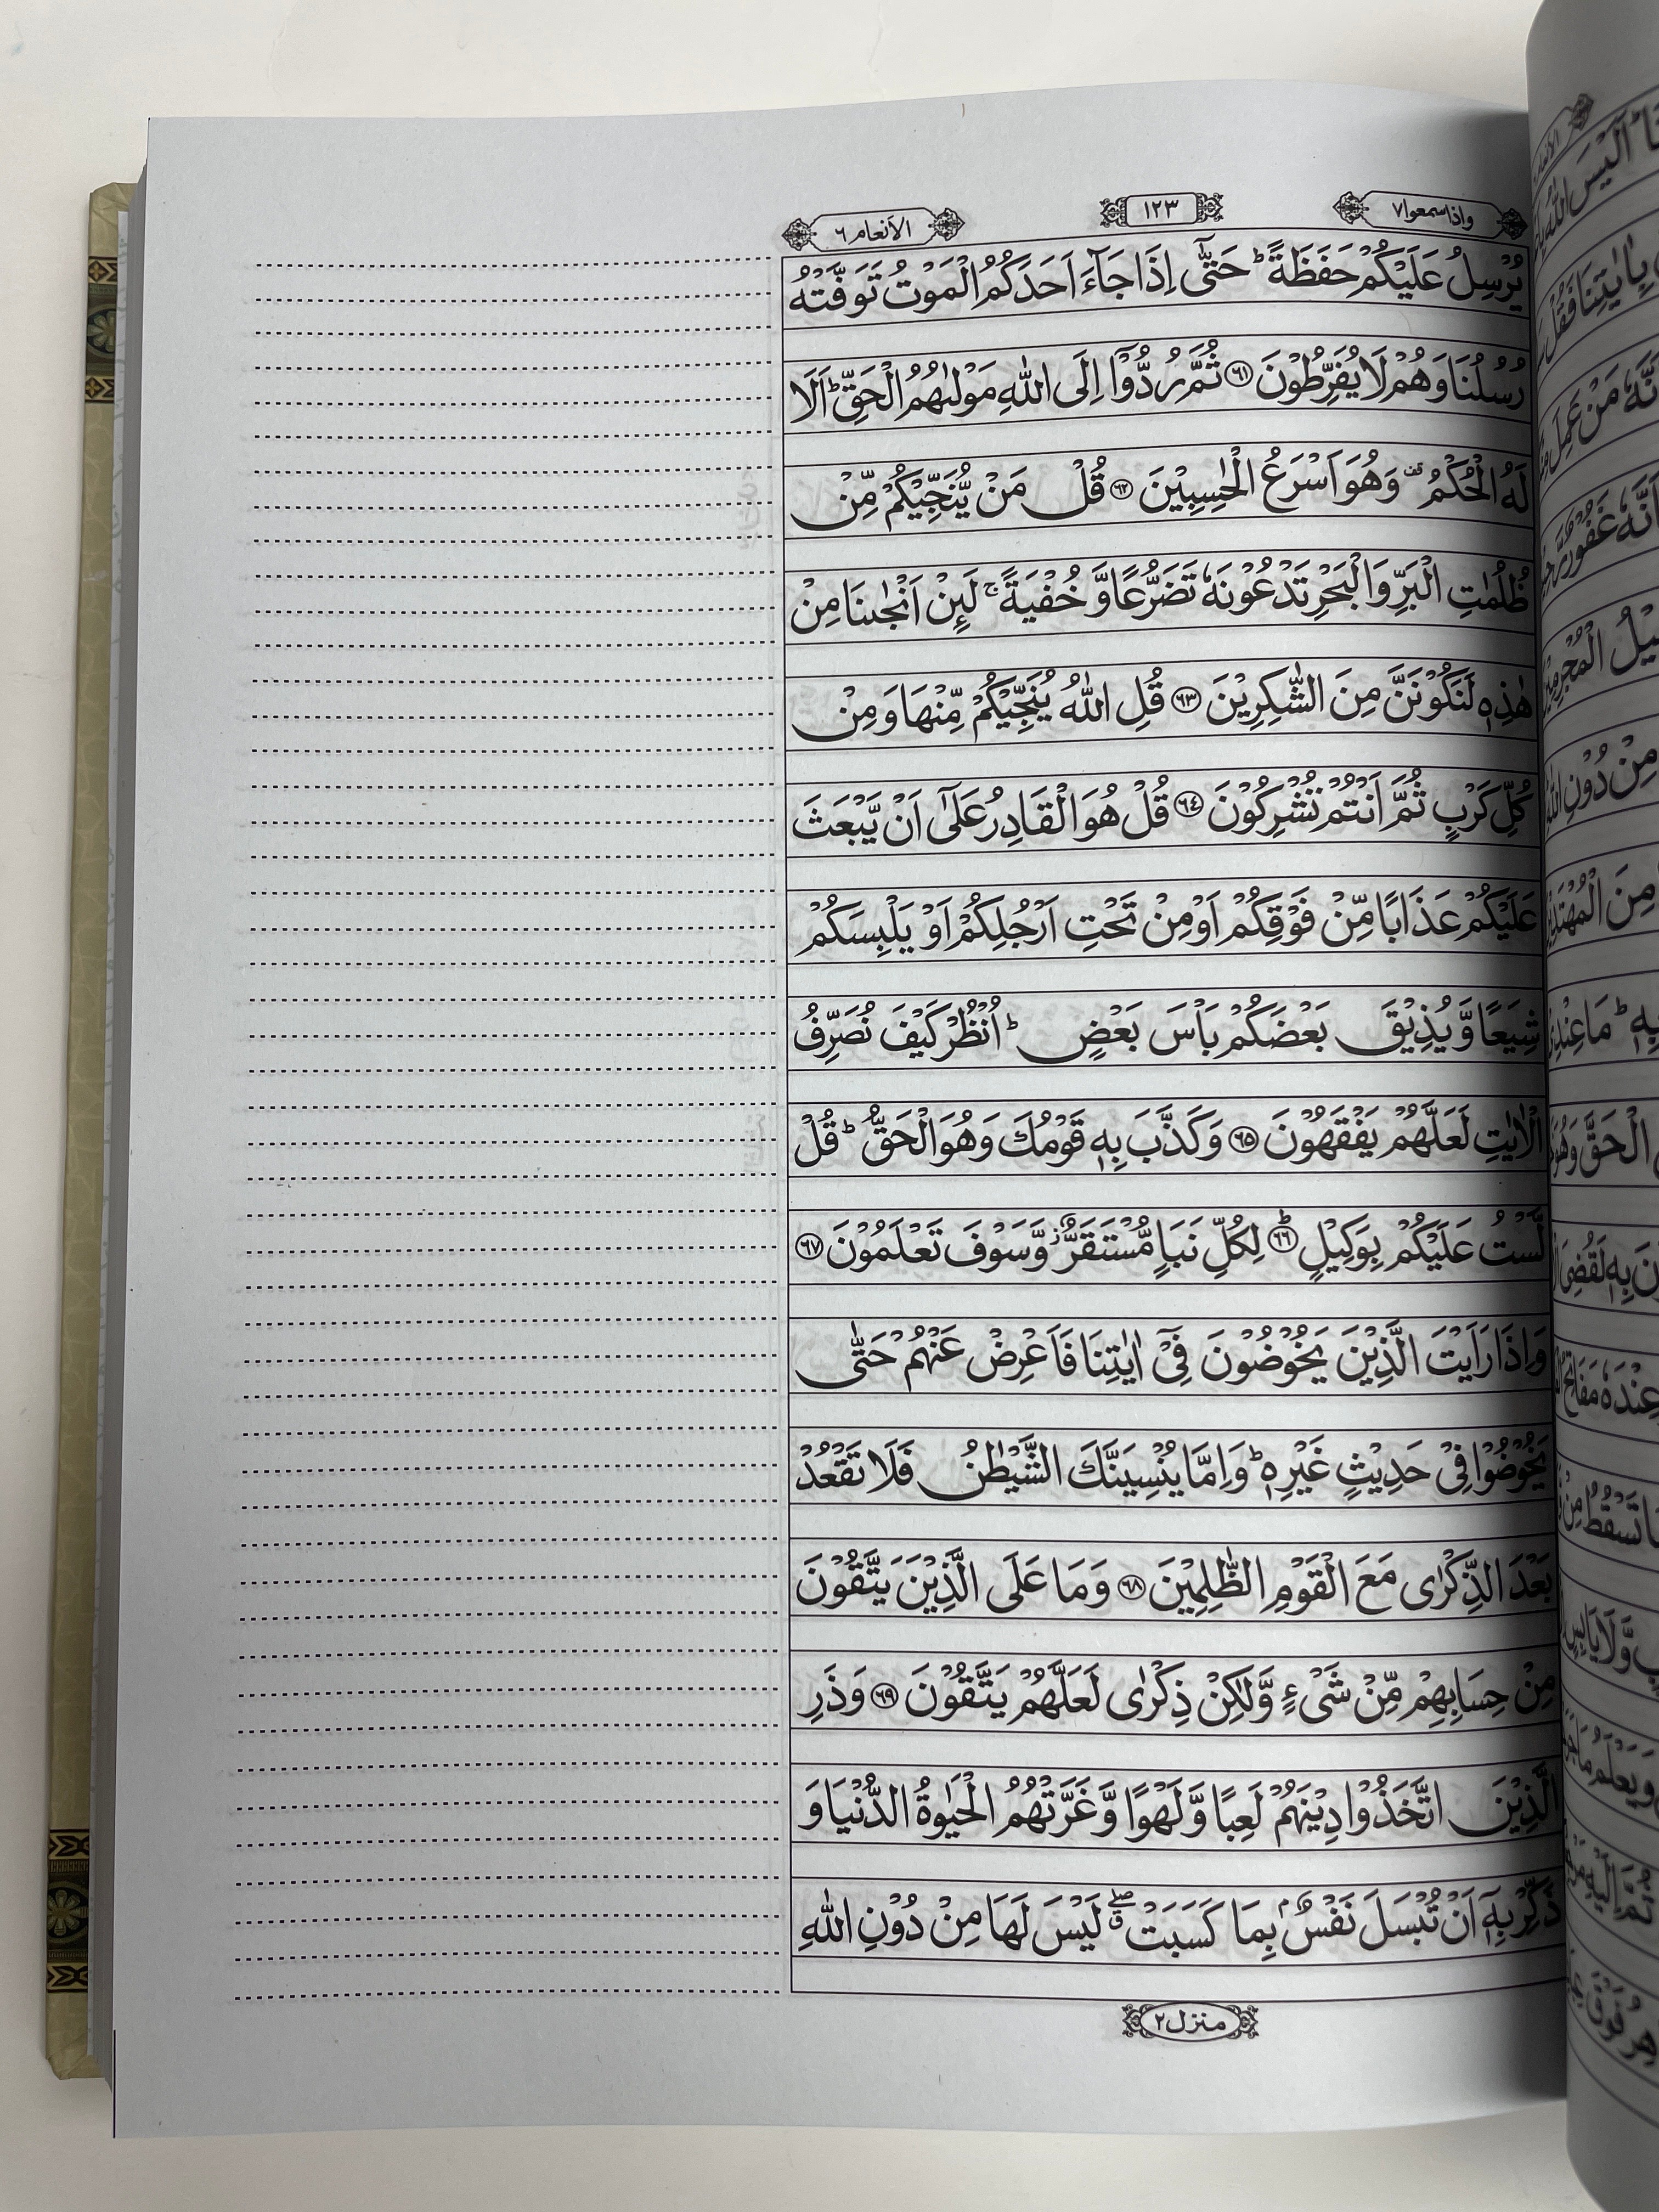 واذاسمعوا٧ ١٢٣ الانعام٦
يُرْسِلُ عَلَيْكُمْ حَفَظَةً ؕ حَتّٰۤى اِذَا جَآءَ اَحَدَكُمُ الْمَوْتُ تَوَفَّتْهُ
رُسُلُنَا وَهُمْ لَا يُفَرِّطُوْنَ ۝٦١ ثُمَّ رُدُّوْۤا اِلَى اللّٰهِ مَوْلٰىهُمُ الْحَقِّ ؕ اَلَا
لَهُ الْحُكْمُ ۫ وَهُوَ اَسْرَعُ الْحٰسِبِيْنَ ۝٦٢ قُلْ مَنْ يُّنَجِّيْكُمْ مِّنْ
ظُلُمٰتِ الْبَرِّ وَالْبَحْرِ تَدْعُوْنَهٗ تَضَرُّعًا وَّ خُفْيَةً ۚ لَىِٕنْ اَنْجٰىنَا مِنْ
هٰذِهٖ لَنَكُوْنَنَّ مِنَ الشّٰكِرِيْنَ ۝٦٣ قُلِ اللّٰهُ يُنَجِّيْكُمْ مِّنْهَا وَ مِنْ
كُلِّ كَرْبٍ ثُمَّ اَنْتُمْ تُشْرِكُوْنَ ۝٦٤ قُلْ هُوَ الْقَادِرُ عَلٰۤى اَنْ يَّبْعَثَ
عَلَيْكُمْ عَذَابًا مِّنْ فَوْقِكُمْ اَوْ مِنْ تَحْتِ اَرْجُلِكُمْ اَوْ يَلْبِسَكُمْ
شِيَعًا وَّ يُذِيْقَ بَعْضَكُمْ بَاْسَ بَعْضٍ ؕ اُنْظُرْ كَيْفَ نُصَرِّفُ
الْاٰيٰتِ لَعَلَّهُمْ يَفْقَهُوْنَ ۝٦٥ وَكَذَّبَ بِهٖ قَوْمُكَ وَهُوَ الْحَقُّ ؕ قُلْ
لَّسْتُ عَلَيْكُمْ بِوَكِيْلٍ ۝٦٦ؕ لِكُلِّ نَبَاٍ مُّسْتَقَرٌّ ؗ وَّسَوْفَ تَعْلَمُوْنَ ۝٦٧
وَاِذَا رَاَيْتَ الَّذِيْنَ يَخُوْضُوْنَ فِيْۤ اٰيٰتِنَا فَاَعْرِضْ عَنْهُمْ حَتّٰى
يَخُوْضُوْا فِيْ حَدِيْثٍ غَيْرِهٖ ؕ وَاِمَّا يُنْسِيَنَّكَ الشَّيْطٰنُ فَلَا تَقْعُدْ
بَعْدَ الذِّكْرٰى مَعَ الْقَوْمِ الظّٰلِمِيْنَ ۝٦٨ وَمَا عَلَى الَّذِيْنَ يَتَّقُوْنَ
مِنْ حِسَابِهِمْ مِّنْ شَيْءٍ وَّلٰكِنْ ذِكْرٰى لَعَلَّهُمْ يَتَّقُوْنَ ۝٦٩ وَذَرِ
الَّذِيْنَ اتَّخَذُوْا دِيْنَهُمْ لَعِبًا وَّلَهْوًا وَّغَرَّتْهُمُ الْحَيٰوةُ الدُّنْيَا وَ
ذَكِّرْ بِهٖۤ اَنْ تُبْسَلَ نَفْسٌۢ بِمَا كَسَبَتْ ۖ لَيْسَ لَهَا مِنْ دُوْنِ اللّٰهِ
منزل٢